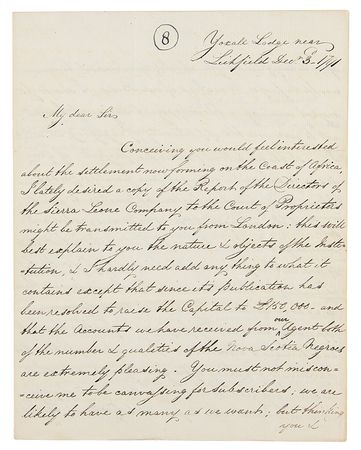 8
Yoxall Lodge near
Lichfield Decr 3 1791
My dear Sir
Conceiving you would feel interested
about the settlement now forming on the Coast of Africa,
I lately desired a copy of the Report of the Directors of
the Sierra Leone Company to the Court of Proprietors
might be transmitted to you from London: this will
best explain to you the nature & objects of the Insti-
-tution, & I hardly need add any thing to what it
contains except that since its publication has
been resolved to raise the Capital to £150,000 - and
that the Accounts we have received from our Agent both
of the number & qualities of the Nova Scotia Negroes
are extremely pleasing. You must not miscon-
=ceive me to be canvassing for subscribers; we are
likely to have as many as we want; but thinking
you &